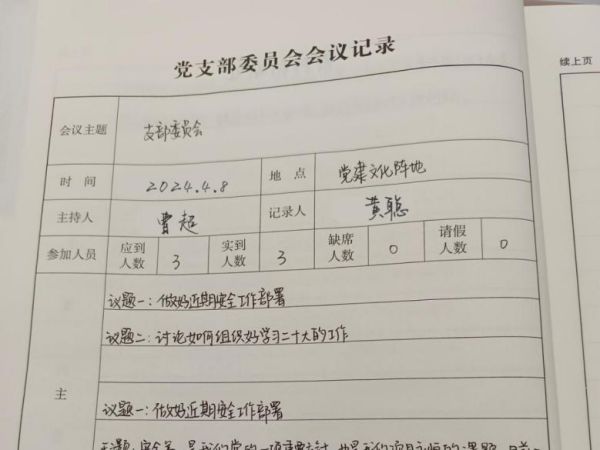 党支部委员会会议记录
续上页
会议主题 支部委员会
时间 2024.4.8 地点 党建文化阵地
主持人 曹超 记录人 黄聪
参加人员 应到人数 3 实到人数 3 缺席人数 0 请假人数 0
议题一:做好近期安全工作部署
议题二:讨论如何组织好学习二十大的工作
主
议题一:做好近期安全工作部署